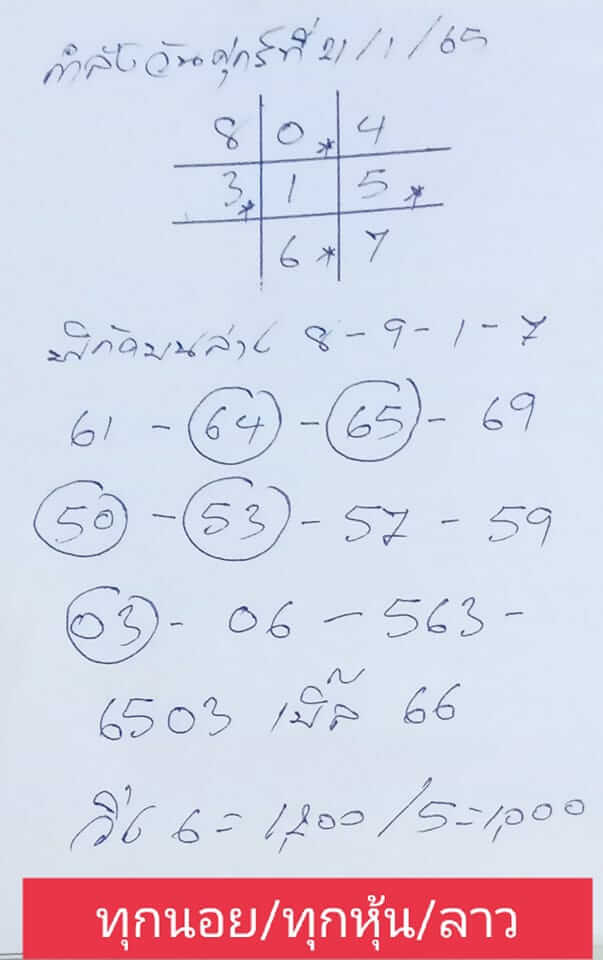 กำลังวันศุกร์ที่ 21/1/65
8 0* 4
3* 1 5*
6* 7
พิกัดบนล่าง 8-9-1-7
61 - 64 - 65 - 69
50 - 53 - 57 - 59
03 - 06 - 563 -
6503 เบิ้ล 66
วิ่ง 6 = 1,200 / 5 = 1,000
ทุกนอย/ทุกหุ้น/ลาว